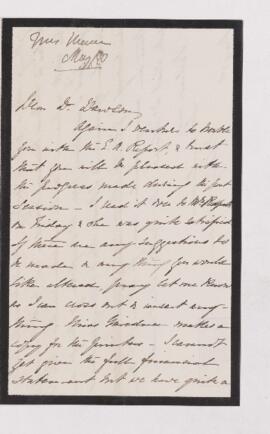 Mrs
May/80
Dear Dr Dawson
Again I venture to trouble
you with the E. A. Report, & trust
that you will be pleased with
the progress made during the past
Session – I read it over to
on Friday & she was quite satisfied
if there are any suggestions to
be made or any thing you would
like altered pray let me know
as I can cross out & insert any-
thing Miss Gairdner makes a
copy for the printers – I cannot
yet give the full financial
statement but we have quite a